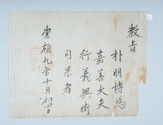 教旨
朴羽搏爲
嘉善大夫
行義興衛
司果者
崇禎九年十月初四日